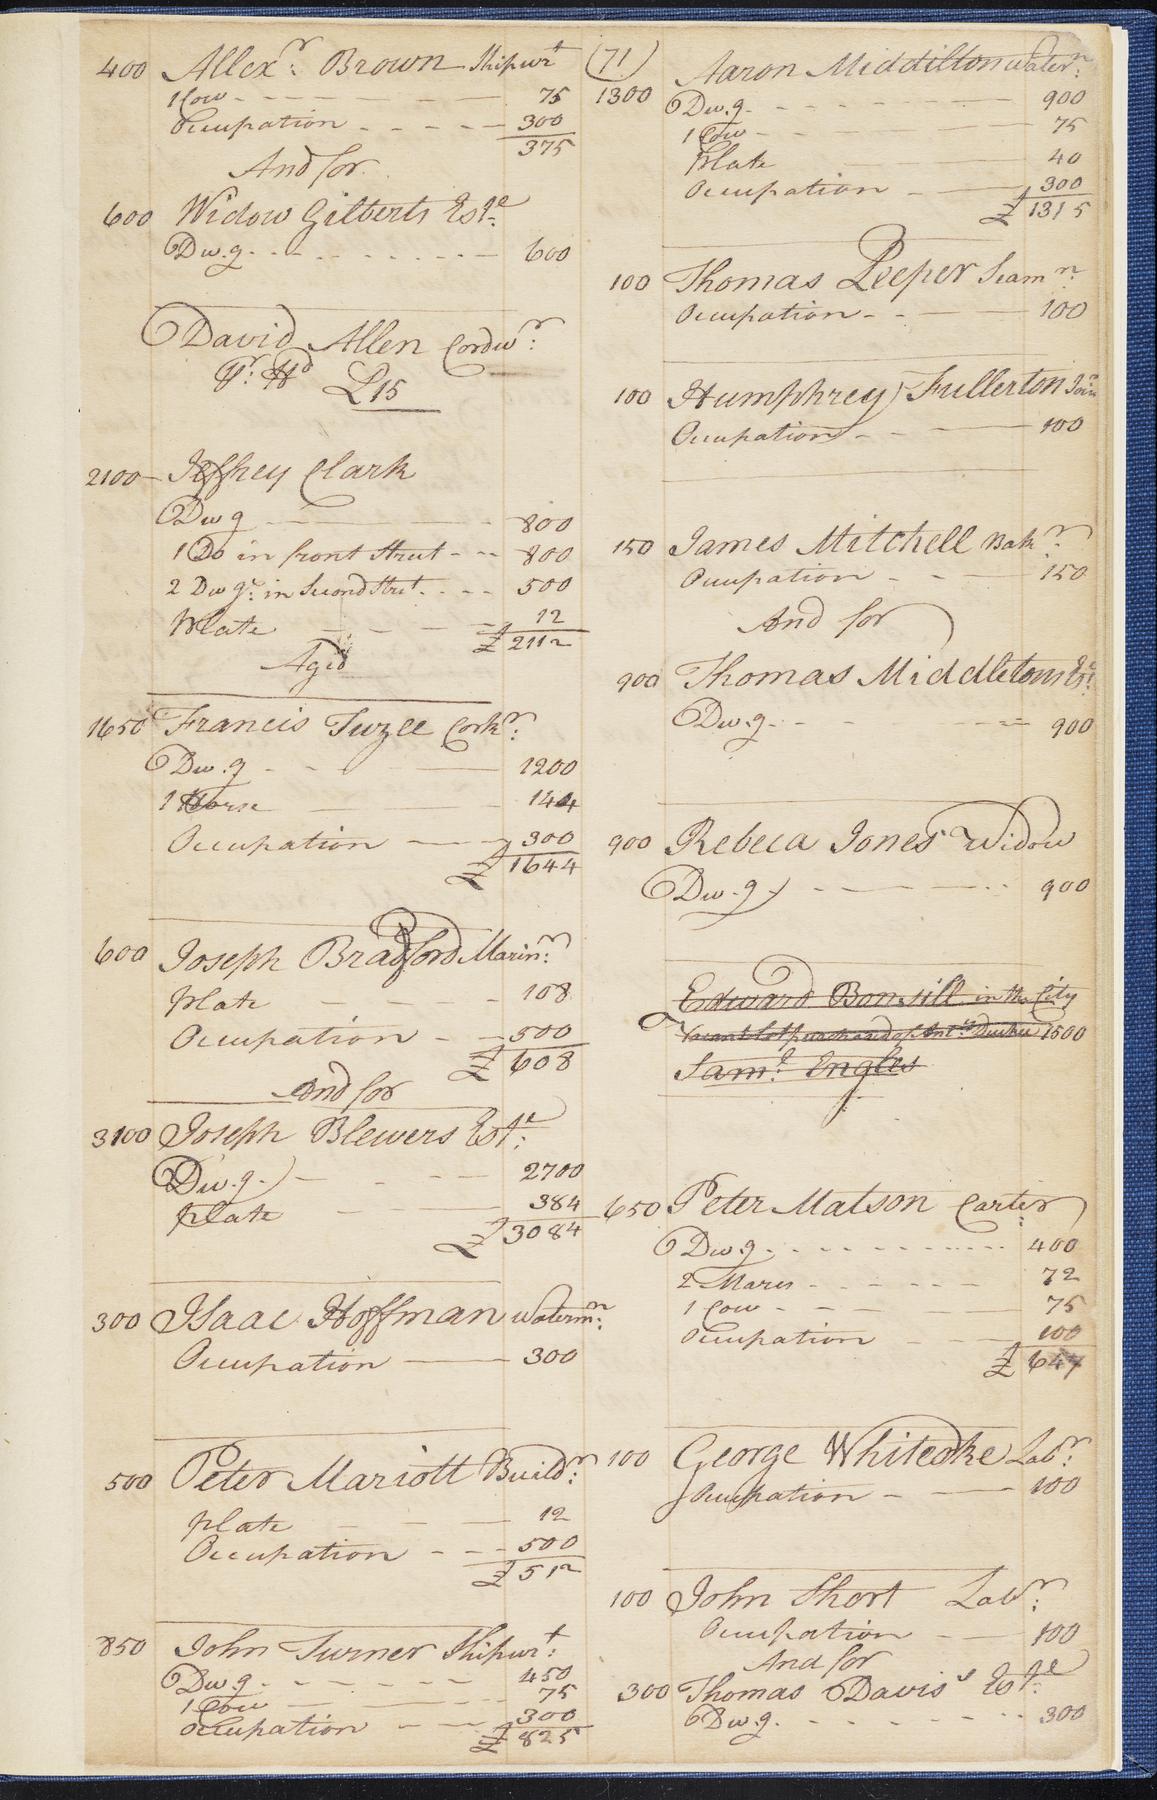 (71)
400 Allexr: Brown Shipwt
1 Cow 75
Occupation 300
375
And for
600 Widow Gilberts Este
Dw.g 600
David Allen Cordwr:
Pr: Hd £15
2100 Jeffrey Clark
Dwg 800
1 Do in front Street 800
2 Dwgs: in Second Street 500
Plate 12
£2112
Aged
1650 Francis Tuzee Corkr:
Dw.g 1200
1 Horse 144
Occupation 300
£1644
600 Joseph Bradford Marinr:
Plate 108
Occupation 500
£608
And for
3100 Joseph Blewers Este:
Dw.g. 2700
Plate 384
£3084
300 Isaac Hoffman Watermn:
Occupation 300
500 Peter Mariott Buildr:
Plate 12
Occupation 500
£512
850 John Turner Shipwt:
Dwg 450
1 Cow 75
Occupation 300
£825
Aaron Middilton Watern:
1300 Dw.g 900
1 Cow 75
Plate 40
Occupation 300
£1315
100 Thomas Leeper Seamn:
Occupation 100
100 Humphrey Fullerton
Occupation 100
150 James Mitchell Bakr:
Occupation 150
And for
900 Thomas Middletons Este:
Dw.g. 900
900 Rebeca Jones Widow
Dw.g 900
Edward Bonsill in the City
Vacant Lot purchased of Antd: 1500
Saml: Engles
650 Peter Matson Carter
Dw.g. 400
2 Mares 72
1 Cow 75
Occupation 100
£647
100 George Whiteoke Labr:
Occupation 100
100 John Short Labr:
Occupation 100
And for
300 Thomas Davis's Este:
Dw.g. 300